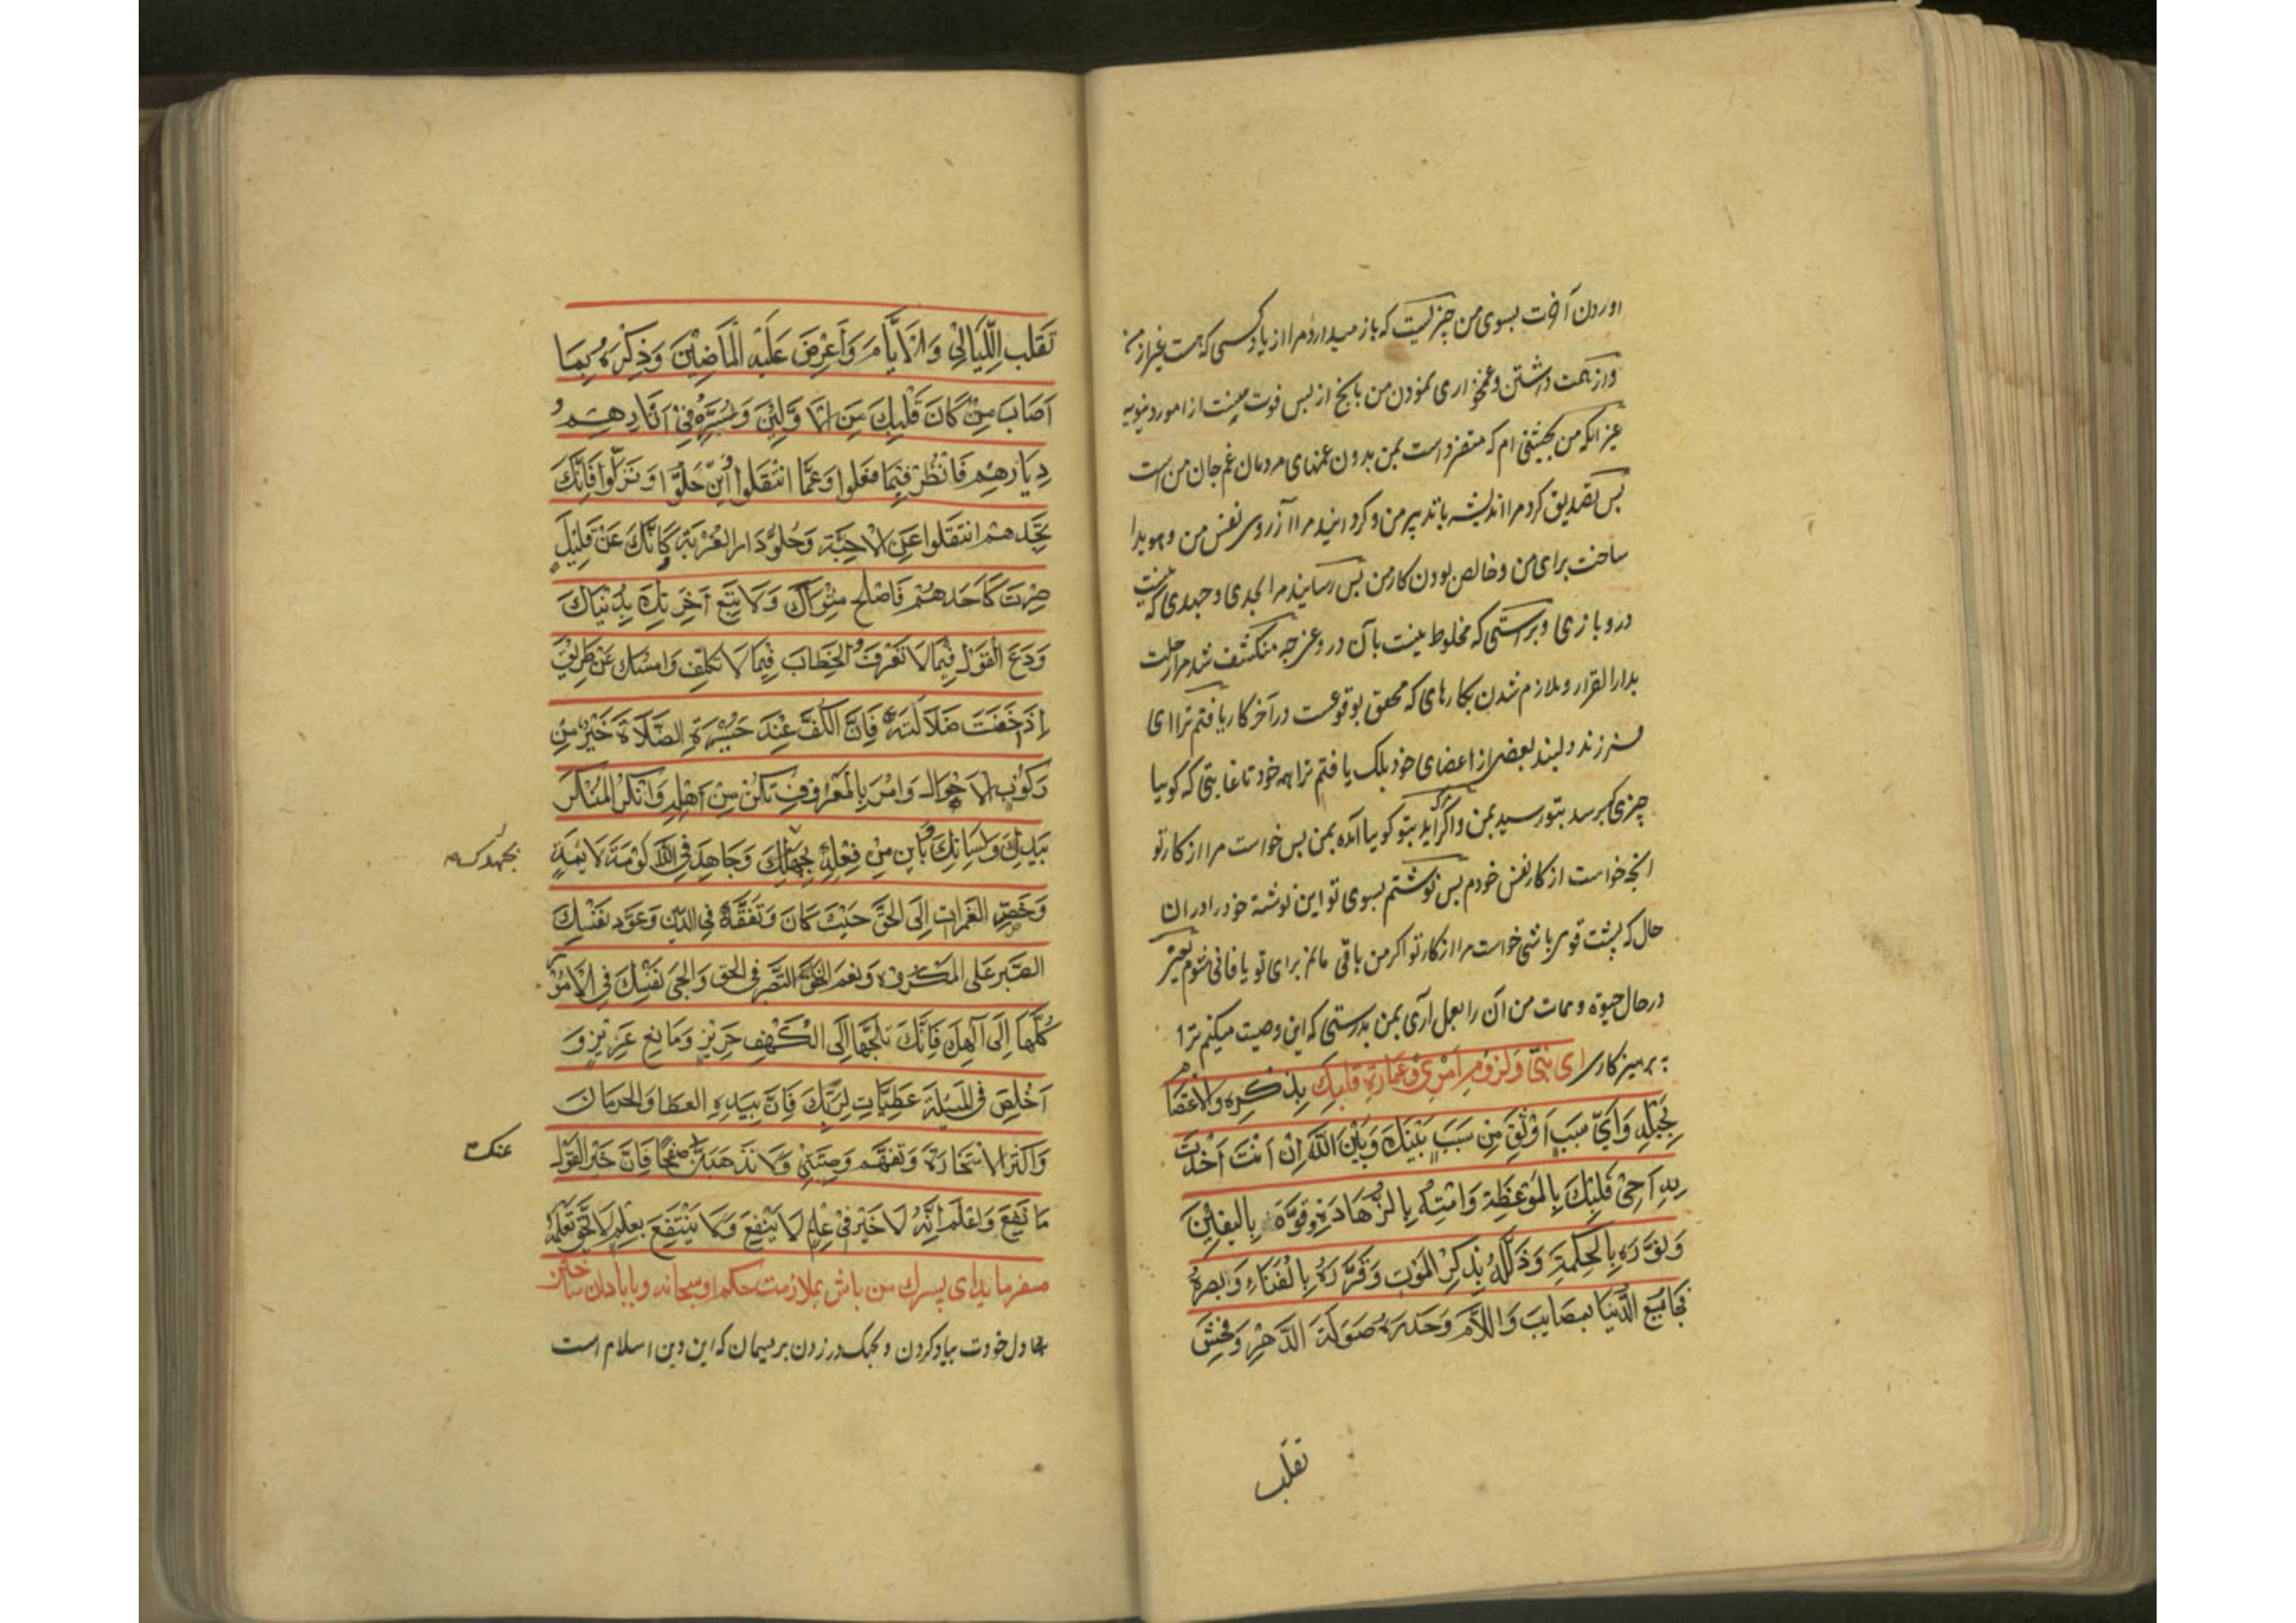 اوردن آخرت بسوی من چیزیست که باز میدارد مرا از یاد کسی که هست غیر از من
واز همت داشتن وغمخواری نمودن من بانچ از پس فوت منست از امور دنیویه
غیر انکه من بحیثیتی ام که متفرد است بمن بدون غمهای مردمان غم جان من است
پس تصدیق کرد مرا اندیشه با تدبیر من و کردانید مرا از آرزوی نفس من و هویدا
ساخت برای من وخالص بودن کار من پس رسانید مرا بجدی و جهدی که نیست
درو بازی و براستی که مخلوط نیست بآن دروغ چه منکشف شد مرا رحلت
بدار القرار وملازم شدن بکارهای که محقق بوقوعست در آخر کار یافتم ترا ای
فرزند دلبند بعضی از اعضای خود بلک یافتم ترا همه خود تا غایتی که کوییا
چیزی که برسد بتو رسید بمن و اکر آید بتو کوییا آمده بمن پس خواست مرا از کار تو
انچه خواست از کار نفس خودم پس نوشتم بسوی تو این نوشته خود را در ان
حال که پشت قوی باشی خواست مرا از کار تو اکر من باقی مانم برای تو یا فانی شوم یعنی
در حال حیوة و ممات من آن را بعمل آری بمن بدرستی که این وصیت میکنم ترا
به پرهیزکاری ای بنی ولزوم امری وعمارة قلبک بذکره والاعتصام
بحبله وَاَیّ سبب اوثق مِن سَبَبٍ بَیْنَكَ وَبَیْنَ اللّٰه اِنْ اَنْتَ اَخَذْتَ
بِهِ اَحْیِ قَلْبَكَ بِالمَوْعِظَةِ وَامِتْهُ بِالزَّهَادَةِ وقوِّهِ بِالیقینِ
وَنَوِّرْهُ بِالحِکمَةِ وَذَلِّلْهُ بِذِکرِ المَوْتِ وَقَرِّرْهُ بِالفَنَاءِ وَبَصِّرْهُ
فجایع الدُّنیَا بمصایب وَاللَّام وَحَذِّرْهُ صَوْلَةَ الدَّهْرِ وَفُحْشَ
تقلب
تَقَلُّبِ اللَّیَالِی وَالاَیَّامِ وَاَعْرِضْ عَلَیْهِ المَاضِیْنَ وَذِکِّرْهُ بِمَا
اَصَابَ مَنْ کَانَ قَبْلَكَ مِنَ الاَوَّلِیْنَ وَسِرْ فِیْ آثَارِهِمْ وَ
دِیَارِهِم فَانْظُرْ فِیْمَا فعَلوا وَعَمَّا انْتَقَلوا وَاَیْنَ حَلُّوا وَنَزَلُوا فَاِنَّكَ
تَجِدهم انتقلوا عَنِ الاَحِبَّةِ وَحُلوُّ دَار الغُرْبَةِ کَاَنَّكَ عَنْ قَلِیْلٍ
صِرْتَ کَاَحَدِهِمْ فَاَصْلح مثواك وَلَا تَبِعْ آخِرَتَكَ بِدُنْیَاكَ
وَدَعِ القَوْلَ فِیْمَا لَا تَعْرِفُ وَالخِطَابَ فِیْمَا لَا تکلف وَامسك عَنْ طَرِیْقٍ
اِذ خِفْتَ ضَلَالَتَهُ فَاِنَّ الکَفَّ عِنْدَ حیْرَةِ الضَّلَالَة خَیْرٌ مِنْ
رَکُوْبِ الاَهْوَالِ وَامُرْ بِالمَعْرُوْفِ تَکُنْ مِنْ اَهْلِهِ وَانْکِرِ المُنْکَرَ
بیَدِكَ وَلِسَانِكَ وَبَایِنْ مَنْ فِعْلُهُ بِجهدك وَجَاهِدْ فِی اللّٰه لَوْمَةَ لَایِمٍ
بجهدك
وَخُضِ الغَمَراتِ اِلَی الحَقِّ حَیْثُ کَانَ وَتَفَقَّهْ فِی الدِّین وَعَوِّد نَفْسَكَ
الصَّبْر عَلی المَکروه وَنِعْمَ الخُلُقُ التَّصَبُّر فی الحق وَالجِیْ نَفْسَكَ فِی الاُمُوْرِ
کُلِّهَا اِلَی اِلٰهِكَ فَاِنَّكَ تلجئها اِلَی الکَهْفِ حَرِیْزٍ وَمَانِعٍ عَزِیْزٍ وَ
اَخْلِصْ فِی المَسْئلةِ عطیات لِرَبِّكَ فَاِنَّ بِیَدِهِ العَطَا وَالحِرْمَانَ
وَاکثر الاسْتخارة وَتفَهَّم وَصِیَّتِیْ وَلَا تَذْهَبَنَّ صَفْحًا فَاِنَّ خَیْرَ القَوْلِ
عنك
مَا نَفَعَ وَاعْلَم اَنَّهُ لَا خَیْرَ فی عِلْمٍ لَا یَنْفَعُ وَلَا یَنْتَفِعُ بعِلْمٍ لَا یَحِقُّ تَعَلُّمُهُ
میفرماید ای پسرك من باش بملازمت حکم او سبحانه و با بادان ساختن
دل خودت بیاد کردن و بچنك در زدن بریسمان که این دین اسلام است